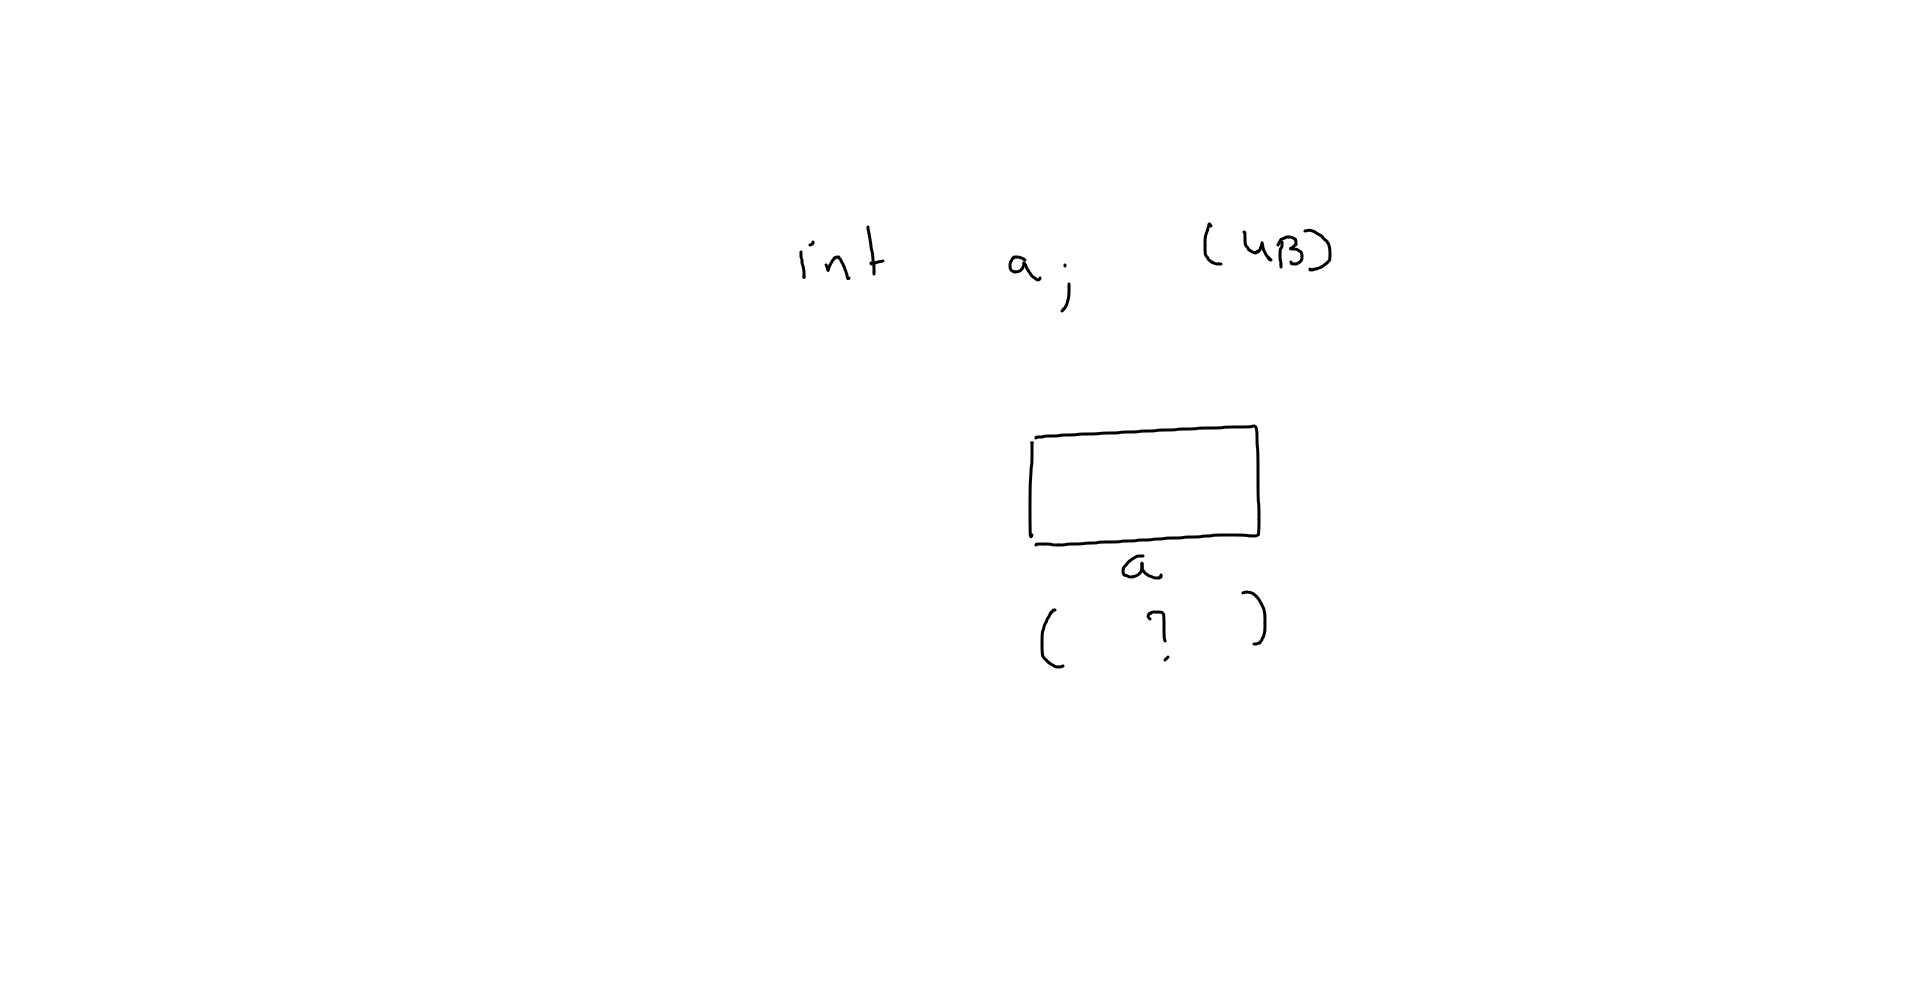 int a; (4B)
a
( ? )